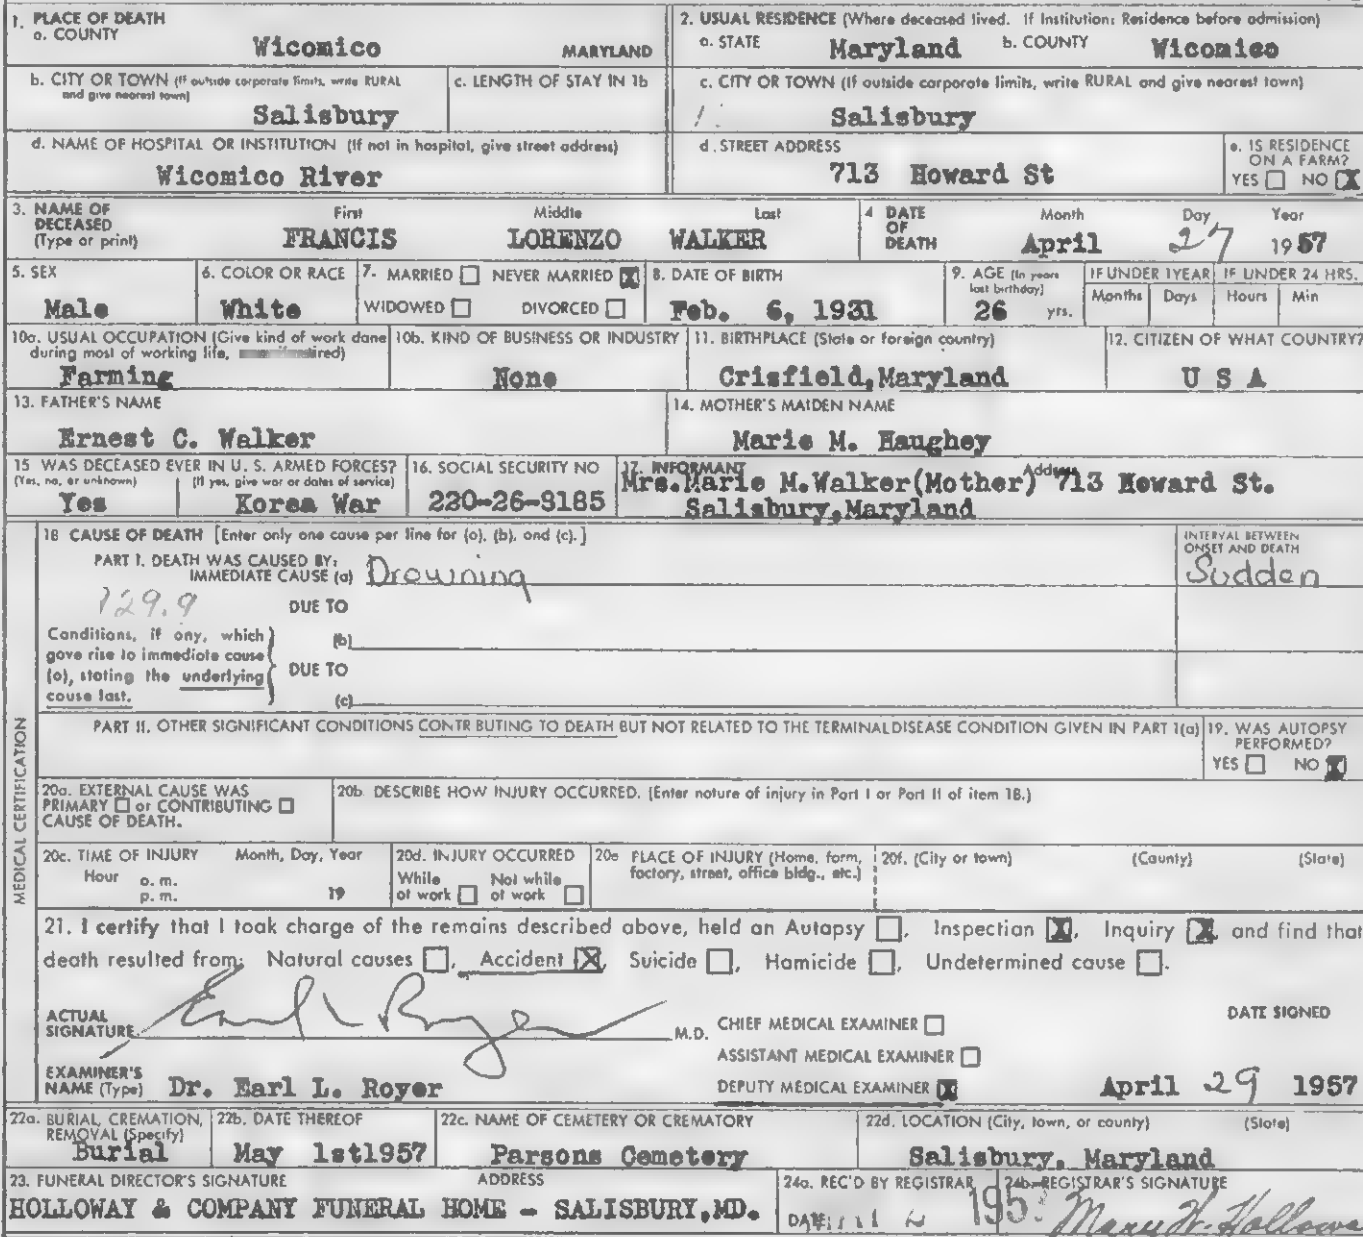 1. PLACE OF DEATH
a. COUNTY Wicomico MARYLAND
2. USUAL RESIDENCE (Where deceased lived. If Institution: Residence before admission)
a. STATE Maryland b. COUNTY Wicomico
b. CITY OR TOWN (If outside corporate limits, write RURAL and give nearest town) Salisbury
c. LENGTH OF STAY IN 1b
c. CITY OR TOWN (If outside corporate limits, write RURAL and give nearest town)
Salisbury
d. NAME OF HOSPITAL OR INSTITUTION (If not in hospital, give street address)
Wicomico River
d. STREET ADDRESS
713 Howard St
e. IS RESIDENCE ON A FARM?
YES NO X
3. NAME OF DECEASED (Type or print)
First Middle Last
FRANCIS LORENZO WALKER
4 DATE OF DEATH
Month Day Year
April 27 1957
5. SEX
Male
6. COLOR OR RACE
White
7. MARRIED NEVER MARRIED X
WIDOWED DIVORCED
8. DATE OF BIRTH
Feb. 6, 1931
9. AGE (In years last birthday)
26 yrs.
IF UNDER 1 YEAR
Months Days
IF UNDER 24 HRS.
Hours Min
10a. USUAL OCCUPATION (Give kind of work done during most of working life,
Farming
10b. KIND OF BUSINESS OR INDUSTRY
None
11. BIRTHPLACE (State or foreign country)
Crisfield, Maryland
12. CITIZEN OF WHAT COUNTRY?
U S A
13. FATHER'S NAME
Ernest C. Walker
14. MOTHER'S MAIDEN NAME
Marie M. Haughey
15 WAS DECEASED EVER IN U. S. ARMED FORCES?
(Yes, no, or unknown) (If yes, give war or dates of service)
Yes Korea War
16. SOCIAL SECURITY NO
220-26-9185
17. INFORMANT Address
Mrs. Marie M. Walker (Mother) 713 Howard St.
Salisbury, Maryland
18 CAUSE OF DEATH [Enter only one cause per line for (a), (b), and (c).]
INTERVAL BETWEEN ONSET AND DEATH
PART I. DEATH WAS CAUSED BY:
IMMEDIATE CAUSE (a) Drowning Sudden
DUE TO
Conditions, if any, which gave rise to immediate cause (a), stating the underlying cause last.
(b)
DUE TO
(c)
PART II. OTHER SIGNIFICANT CONDITIONS CONTRIBUTING TO DEATH BUT NOT RELATED TO THE TERMINAL DISEASE CONDITION GIVEN IN PART I(a)
19. WAS AUTOPSY PERFORMED?
YES NO X
MEDICAL CERTIFICATION
20a. EXTERNAL CAUSE WAS PRIMARY or CONTRIBUTING CAUSE OF DEATH.
20b. DESCRIBE HOW INJURY OCCURRED. (Enter nature of injury in Part I or Part II of item 18.)
20c. TIME OF INJURY Month, Day, Year
Hour a. m.
p. m. 19
20d. INJURY OCCURRED
While at work Not while at work
20e PLACE OF INJURY (Home, farm, factory, street, office bldg., etc.)
20f. (City or town) (County) (State)
21. I certify that I took charge of the remains described above, held an Autopsy , Inspection X, Inquiry X, and find that
death resulted from: Natural causes , Accident X, Suicide , Homicide , Undetermined cause .
ACTUAL SIGNATURE Earl L Royer M.D.
CHIEF MEDICAL EXAMINER
ASSISTANT MEDICAL EXAMINER
DEPUTY MEDICAL EXAMINER X
DATE SIGNED
April 29 1957
EXAMINER'S NAME (Type) Dr. Earl L. Royer
22a. BURIAL, CREMATION, REMOVAL (Specify)
Burial
22b. DATE THEREOF
May 1st 1957
22c. NAME OF CEMETERY OR CREMATORY
Parsons Cemetery
22d. LOCATION (City, town, or county) (State)
Salisbury, Maryland
23. FUNERAL DIRECTOR'S SIGNATURE ADDRESS
HOLLOWAY & COMPANY FUNERAL HOME - SALISBURY, MD.
24a. REC'D BY REGISTRAR
DATE
24b. REGISTRAR'S SIGNATURE
Mary W. Holloway